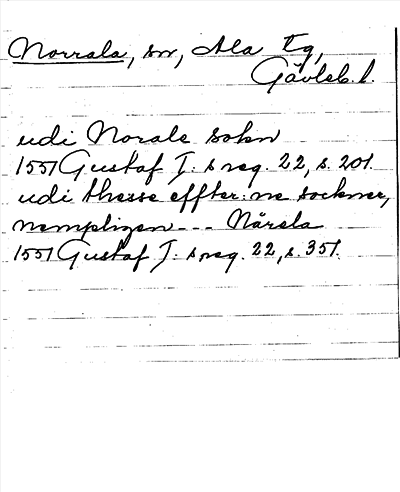 Norrala, sn, Ala tg,
Gävleb. l.
udi Norale sokn
1551 Gustaf I: s reg. 22, s. 201.
udi thesse effter:ne sockner,
nempligen --- Nårala
1551 Gustaf I: s reg. 22, s. 351.